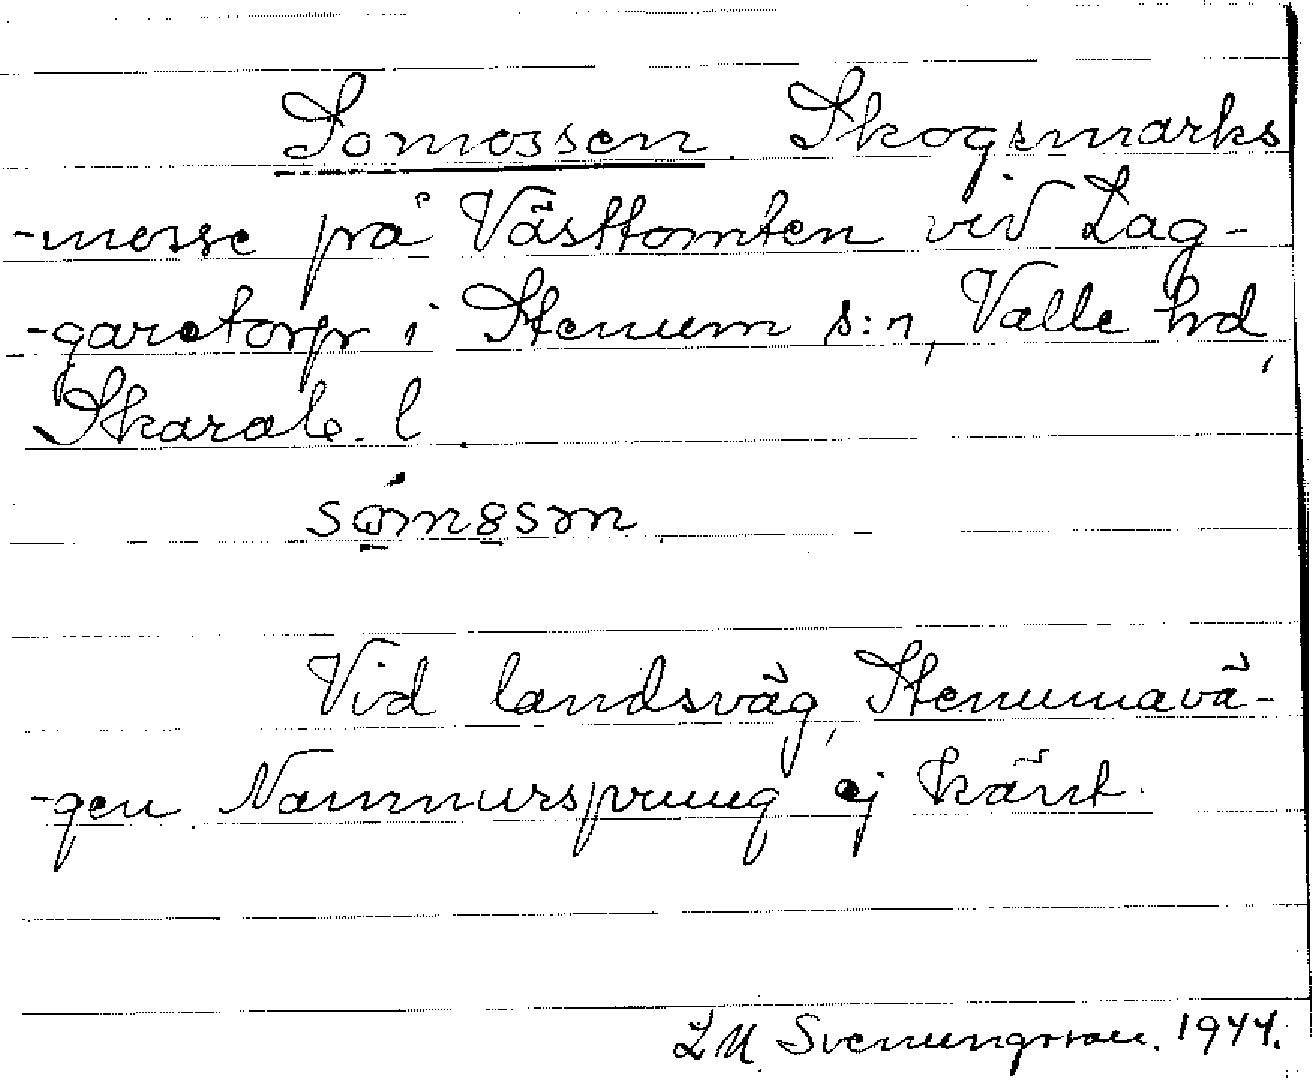 Somossen. Skogsmarks
-mosse på Västtomten vid Lag-
-garetorp i Stenum s:n, Valle hd,
Skarab. l.
sömɞsɷn
Vid landsväg, Stenumavä-
-gen Namnursprung ej känt.
L M Svenungsson. 1944.